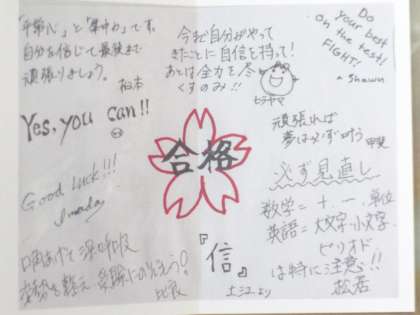 「平常心」と「集中力」です。
自分を信じて最後まで
頑張りましょう。
柏本
Yes, you can!!
Good Luck!!!
口角あげて 深呼吸
姿勢を整え 受験にのぞもう!
比良
今まで自分がやって
きたことに自信を持って!
あとは全力を尽
くすのみ!!
ヒラヤマ
合格
『信』
土江より
Do
your best
on the test!
FIGHT!
Shawn
頑張れば
夢は必ず叶う
甲斐
必ず見直し
数学=+.-.単位
英語=大文字・小文字
ピリオド
は特に注意!!
松居